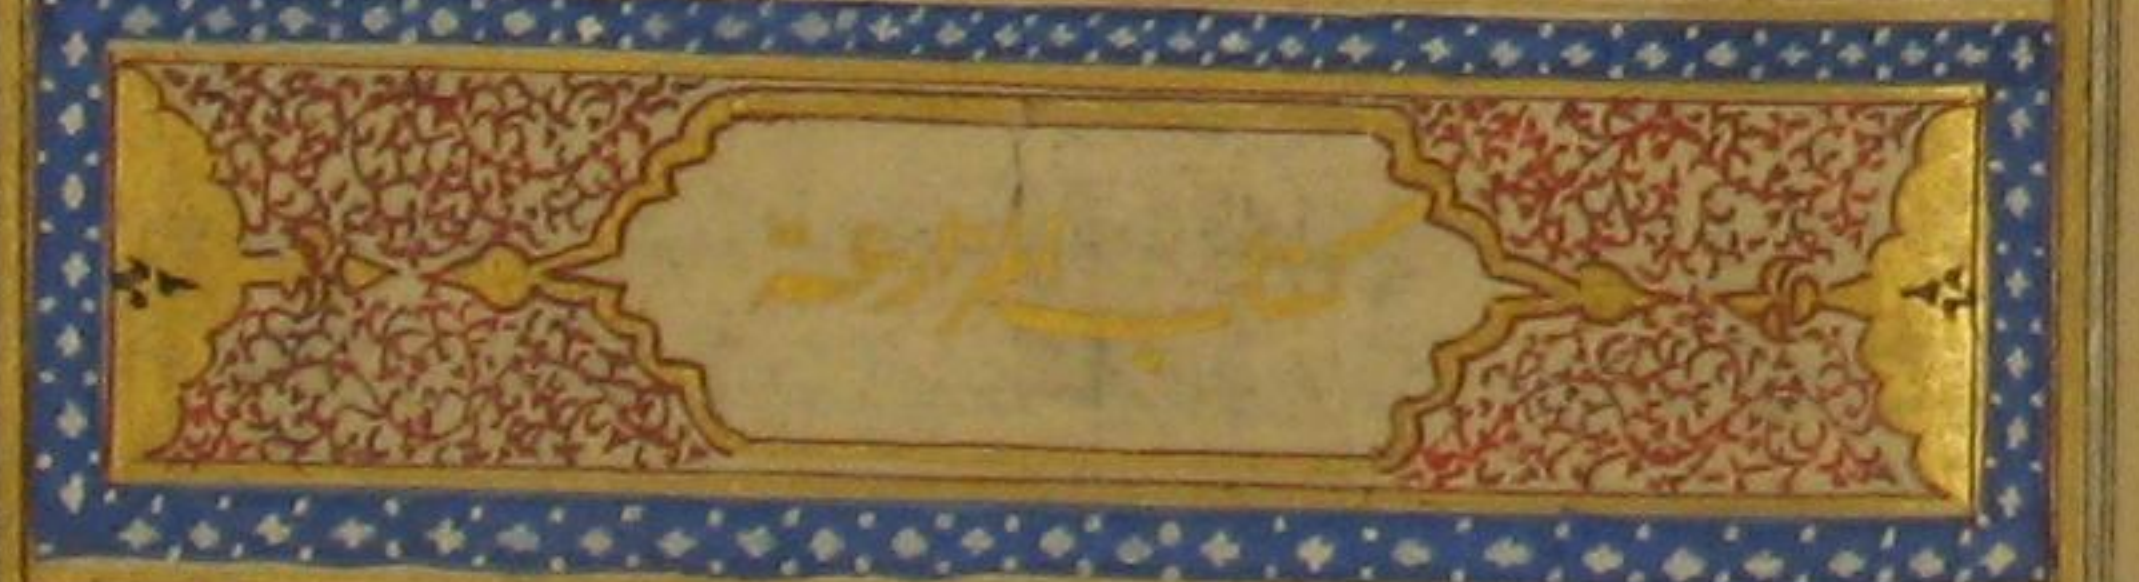 كتاب المزارعة